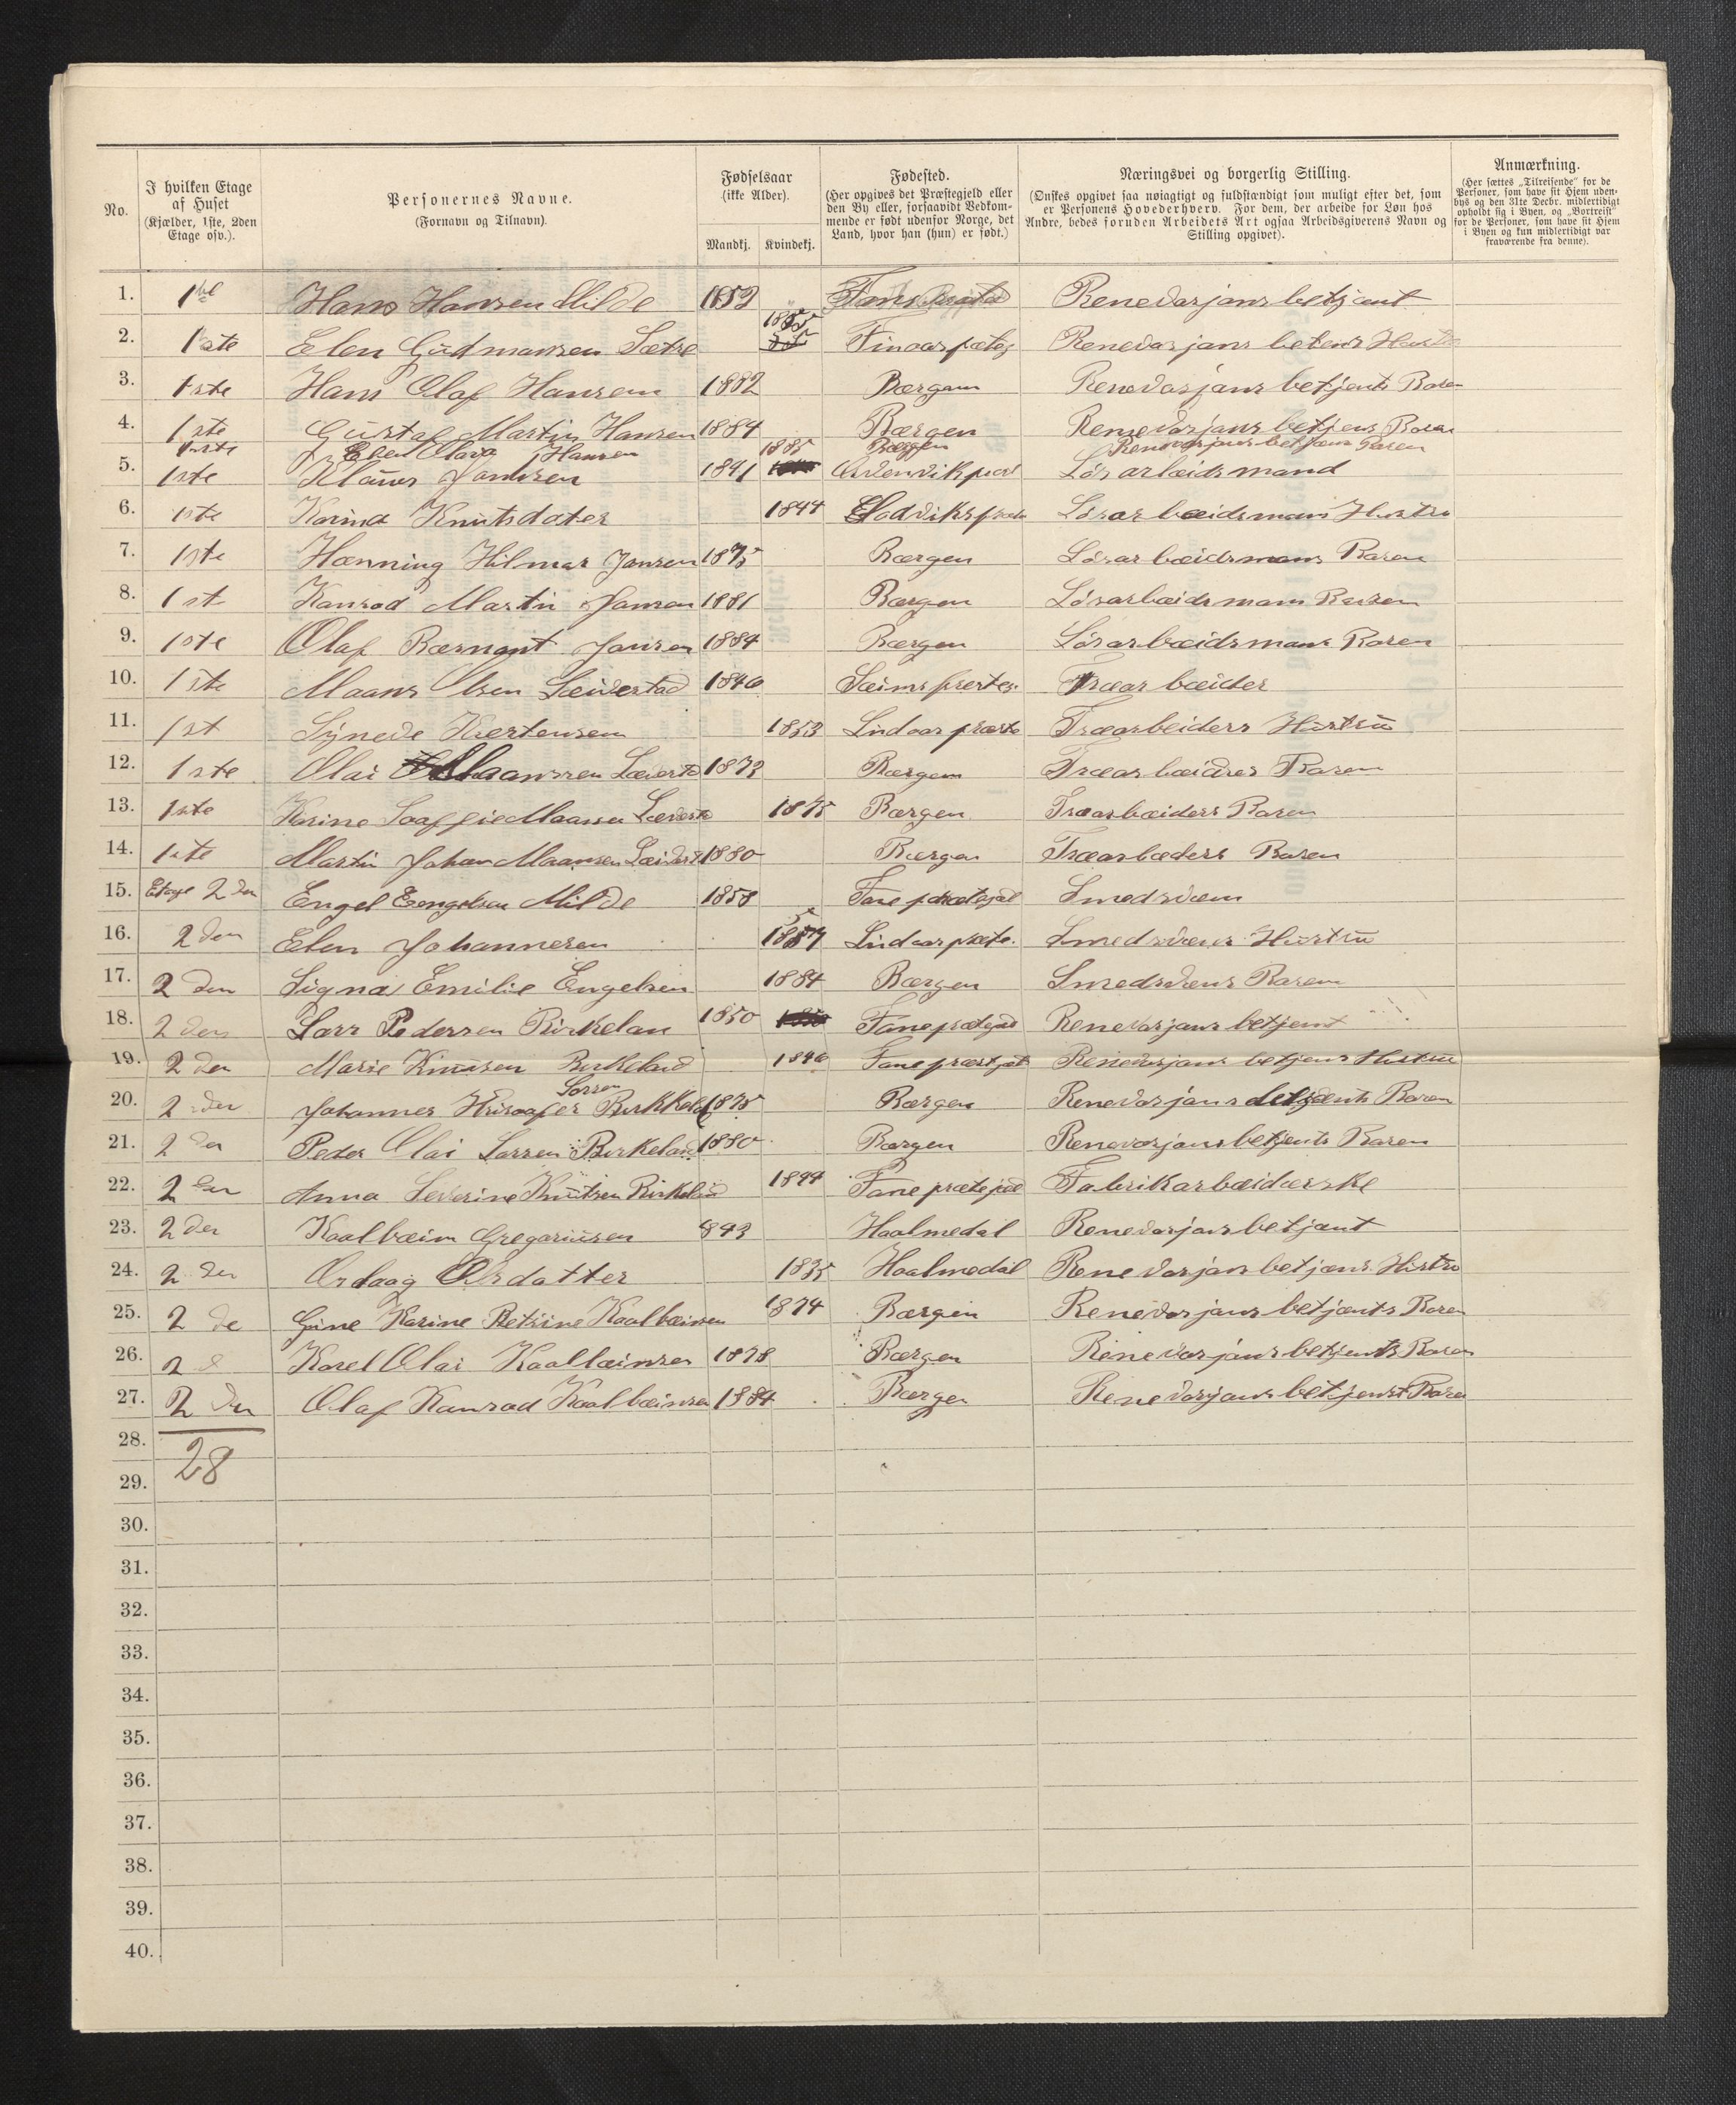 No.
I hvilken Etage af Huset (Kjælder, 1ste, 2den Etage osv.).
Personernes Navne. (Fornavn og Tilnavn).
Fødselsaar (ikke Alder).
Mandkj. Kvindekj.
Fødested. (Her opgives det Præstegjeld eller den By eller, forsaavidt Vedkommende er født udenfor Norge, det Land, hvor han (hun) er født.)
Næringsvei og borgerlig Stilling. (Ønskes opgivet saa nøiagtigt og fuldstændigt som muligt efter det, som er Personens Hovederhverv. For dem, der arbeide for Løn hos Andre, bedes foruden Arbeidets Art ogsaa Arbeidsgiverens Navn og Stilling opgivet).
Anmærkning. (Her sættes „Tilreisende" for de Personer, som have sit Hjem udenbys og den 31te Decbr. midlertidigt opholdt sig i Byen, og „Bortreist" for de Personer, som have sit Hjem i Byen og kun midlertidigt var fraværende fra denne).
1. Hans Hansen Milde 1852 Renevasjans betjænt
2. 1ste Elen Gudmansen Sætre 1855 Renevasjans
3. 1ste Hans Olaf Hansen 1882 Bærgen Renevasjans betjents Baren
4. 1ste Gustaf Martin Hansen 1884 Bærgen Renevasjans betjens Baren
1ste Elen Olava Hansen 1885 Bærgen Renevasjans betjens Baren
5. 1ste Klaus Jansen 1841 Løsarbeidsmand
6. 1ste Karina Knutsdater 1844 Løsarbeidsmans Hustro
7. 1ste Hænning Hilmar Jansen 1875 Bærgen Løsarbæidsmans Baren
8. 1st Kanrod Martin Jansen 1881 Bærgen Løsarbæidsmans Barren
9. 1ste Olaf Bærnant Jansen 1884 Bærgen Løsarbæidsmans Baren
10. 1ste Maans Olsen 1846 Træarbæider
11. 1st Synede 1853 Lindaas præste Træarbeiders Hustru
12. 1ste Olai Maansen 1873 Bærgen Træarbæidres Baren
13. 1ste Karine 1875 Bærgen Træarbæiders Baren
14. 1ste Martin Johan Maansen 1880 Bærgen Træarbæders Baren
15. Etage 2den Engel Eengelsen Milde 1858 Smedsven
16. 2den Elen Johannesen Lindaas Smedsvens Hustru
17. 2den Signa Emilie Engelsen 1884 Bærgen Smedsvens Baren
18. 2den Lars Pedersen Birkelan 1850 Renevasjans betjent
19. 2den Marie Knusen Birkeland 1846 Renevasjans betjens Hustru
20. 2den Johannes Larsen 1875 Bærgen Renevasjans betjents Baren
21. 2den Peder Olai Larsen Birkeland 1880 Bærgen Renevasjans betjents Baren
22. 2den Anna Severine Knutsen Fabrikarbæidærske
23. 2den Kaalbæin Gregoriusen 843 Haalmedal Renevasjans betjænt
24. 2den Ordaag 1835 Haalmedal Renevasjans betjæns Hustro
25. 2de Gine Karine Betsine Kaalbæinsen 1874 Bærgen Renevasjans betjænts Baren
26. 2d Karel Olai Kaalbæinsen 1878 Bærgen Renevasjans betjents Baren
27. 2den Olaf Kanrad Kaalbæinsen 1884 Bærgen Renevasjans betjenst Baren
28.
28
29.
30.
31.
32.
33.
34.
35.
36.
37.
38.
39.
40.